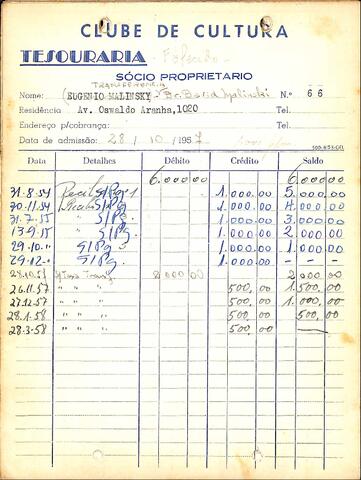 CLUBE DE CULTURA
TESOURARIA Falecido
SÓCIO PROPRIETARIO
TRANSFERENCIA
Nome: (EUGENIO MALINSKY - Dr. Malinski N.º 66
Residência Av. Oswaldo Aranha, 1020 Tel.
Endereço p/cobrança: Tel.
Data de admissão: 28 / 10 / 1957
Data Detalhes Débito Crédito Saldo
6.000,00 6.000,00
31.8.54 S/Pg 1.000,00 5.000,00
30.11.54 S/Pg 1.000,00 4.000,00
31.7.55 " S/Pg 1.000,00 3.000,00
13.9.55 " S/Pg 1.000,00 2.000,00
29.10. S/Pg 1.000,00 1.000,00
29.12. S/Pg 1.000,00 - -
28.10.57 2.000,00 2.000,00
26.11.57 " " " 500,00 1.500,00
27.12.57 " " " 500,00 1.000,00
28.1.58 " " " 500,00 500,00
28.3.58 " " " 500,00